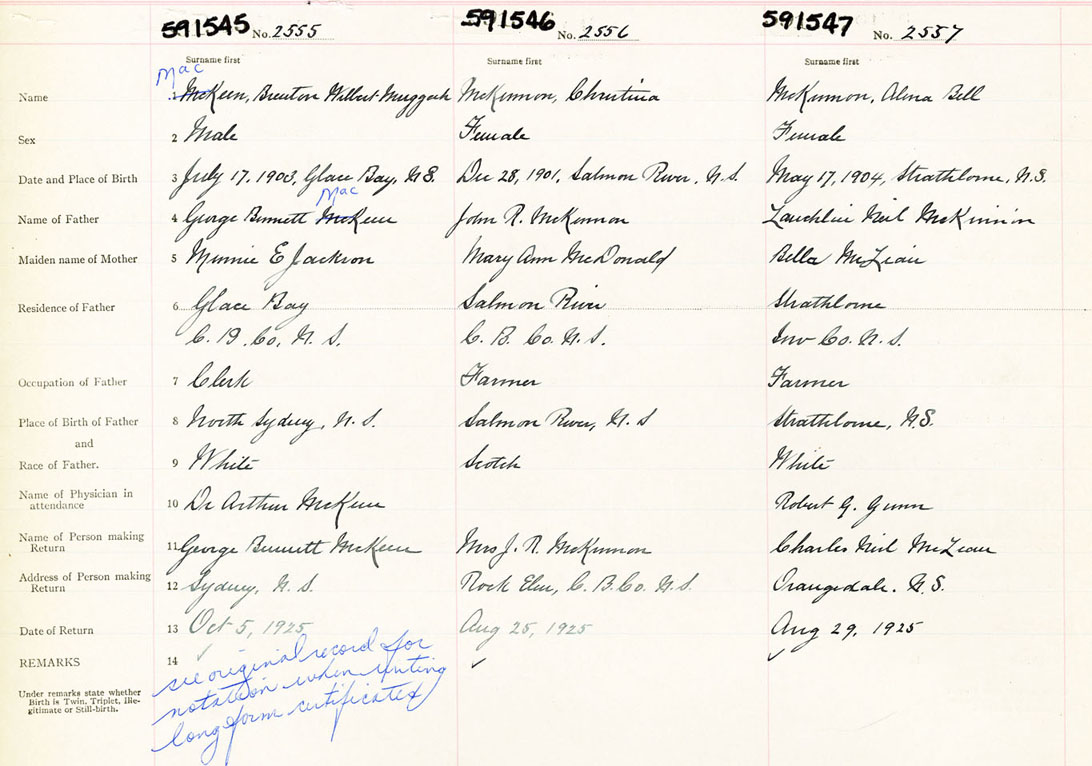 591545 No. 2555 591546 No. 2556 591547 No. 2557
Surname first Surname first Surname first
Mac
Name 1 McKeen, Brenton Wilbert Muggah McKinnon, Christina McKinnon, Alena Bell
Sex 2 Male Female Female
Date and Place of Birth 3 July 17, 1903, Glace Bay, N.S. Dec 28, 1901, Salmon River, N.S. May 17, 1904, Strathlorne, N.S.
Mac
Name of Father 4 George Bennett McKeen John R. McKinnon Lauchlin Neil McKinnon
Maiden name of Mother 5 Minnie E Jackson Mary Ann McDonald Bella McLean
Residence of Father 6 Glace Bay Salmon River Strathlorne
C. B. Co, N. S. C. B. Co. N. S. Inv Co. N. S.
Occupation of Father 7 Clerk Farmer Farmer
Place of Birth of Father 8 North Sydney, N. S. Salmon River, N. S Strathlorne, N.S.
and
Race of Father. 9 White Scotch White
Name of Physician in
attendance 10 Dr Arthur McKeen Robert G. Gunn
Name of Person making
Return 11 George Bennett McKeen Mrs J. R. McKinnon Charles Neil McLean
Address of Person making
Return 12 Sydney, N. S. Rock Elm, C. B. Co. N. S. Orangedale. N.S.
Date of Return 13 Oct 5, 1925 Aug 25, 1925 Aug 29, 1925
REMARKS 14 see original record for
notation when writing
long form certificates
Under remarks state whether
Birth is Twin, Triplet, Ille-
gitimate or Still-birth.